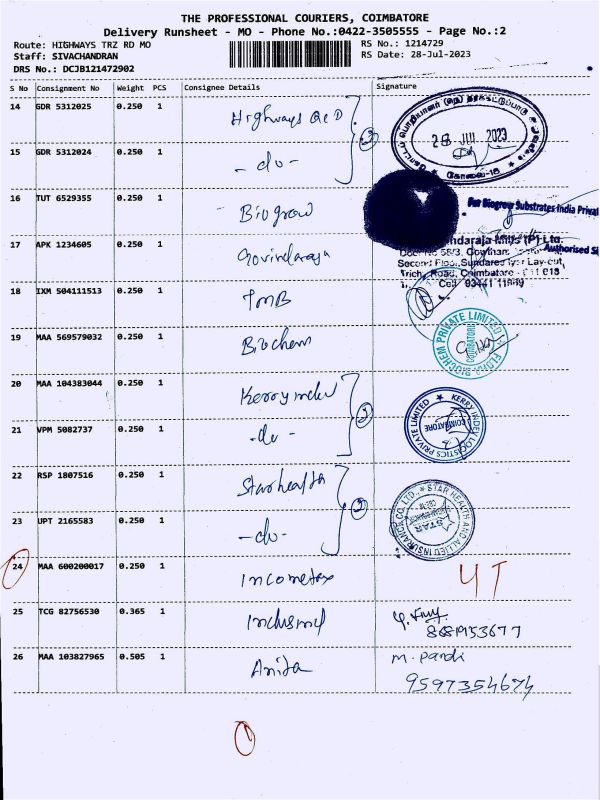 THE PROFESSIONAL COURIERS, COIMBATORE
Delivery Runsheet - MO - Phone No.:0422-3505555 - Page No.:2
Route: HIGHWAYS TRZ RD MO
RS No.: 1214729
Staff: SIVACHANDRAN
RS Date: 28-Jul-2023
DRS No.: DCJB121472902
S No Consignment No Weight PCS Consignee Details Signature
14 GDR 5312025 0.250 1 Highways
2
28 JUL 2023
கோவை-18
15 GDR 5312024 0.250 1 -do-
16 TUT 6529355 0.250 1 Biogrow
For Biogrow Substrates India Privat
17 APK 1234605 0.250 1 Govindaraja
ndaraja Mills (P) Ltd.
Authorised Si
Door No 58/3, Gowtham
Second Floor, Sundaresa Iyer Lay-out,
Trichy Road, Coimbatore - 641 018
18 IXM 504111513 0.250 1 TMB
Cell: 93441 11849
19 MAA 569579032 0.250 1 Biochem
BIOCHEM PRIVATE LIMITED
COIMBATORE
20 MAA 104383044 0.250 1 Kerry indev
2
KERRY INDEV LOGISTICS PRIVATE LIMITED
COIMBATORE
21 VPM 5082737 0.250 1 -do-
22 RSP 1807516 0.250 1 Starhealth
2
STAR HEALTH AND ALLIED INSURANCE CO. LTD.,
STAR
23 UPT 2165583 0.250 1 -do-
24 MAA 600200017 0.250 1 Incometax
25 TCG 82756530 0.365 1
26 MAA 103827965 0.505 1 Anita
M. Pandi
9597354674